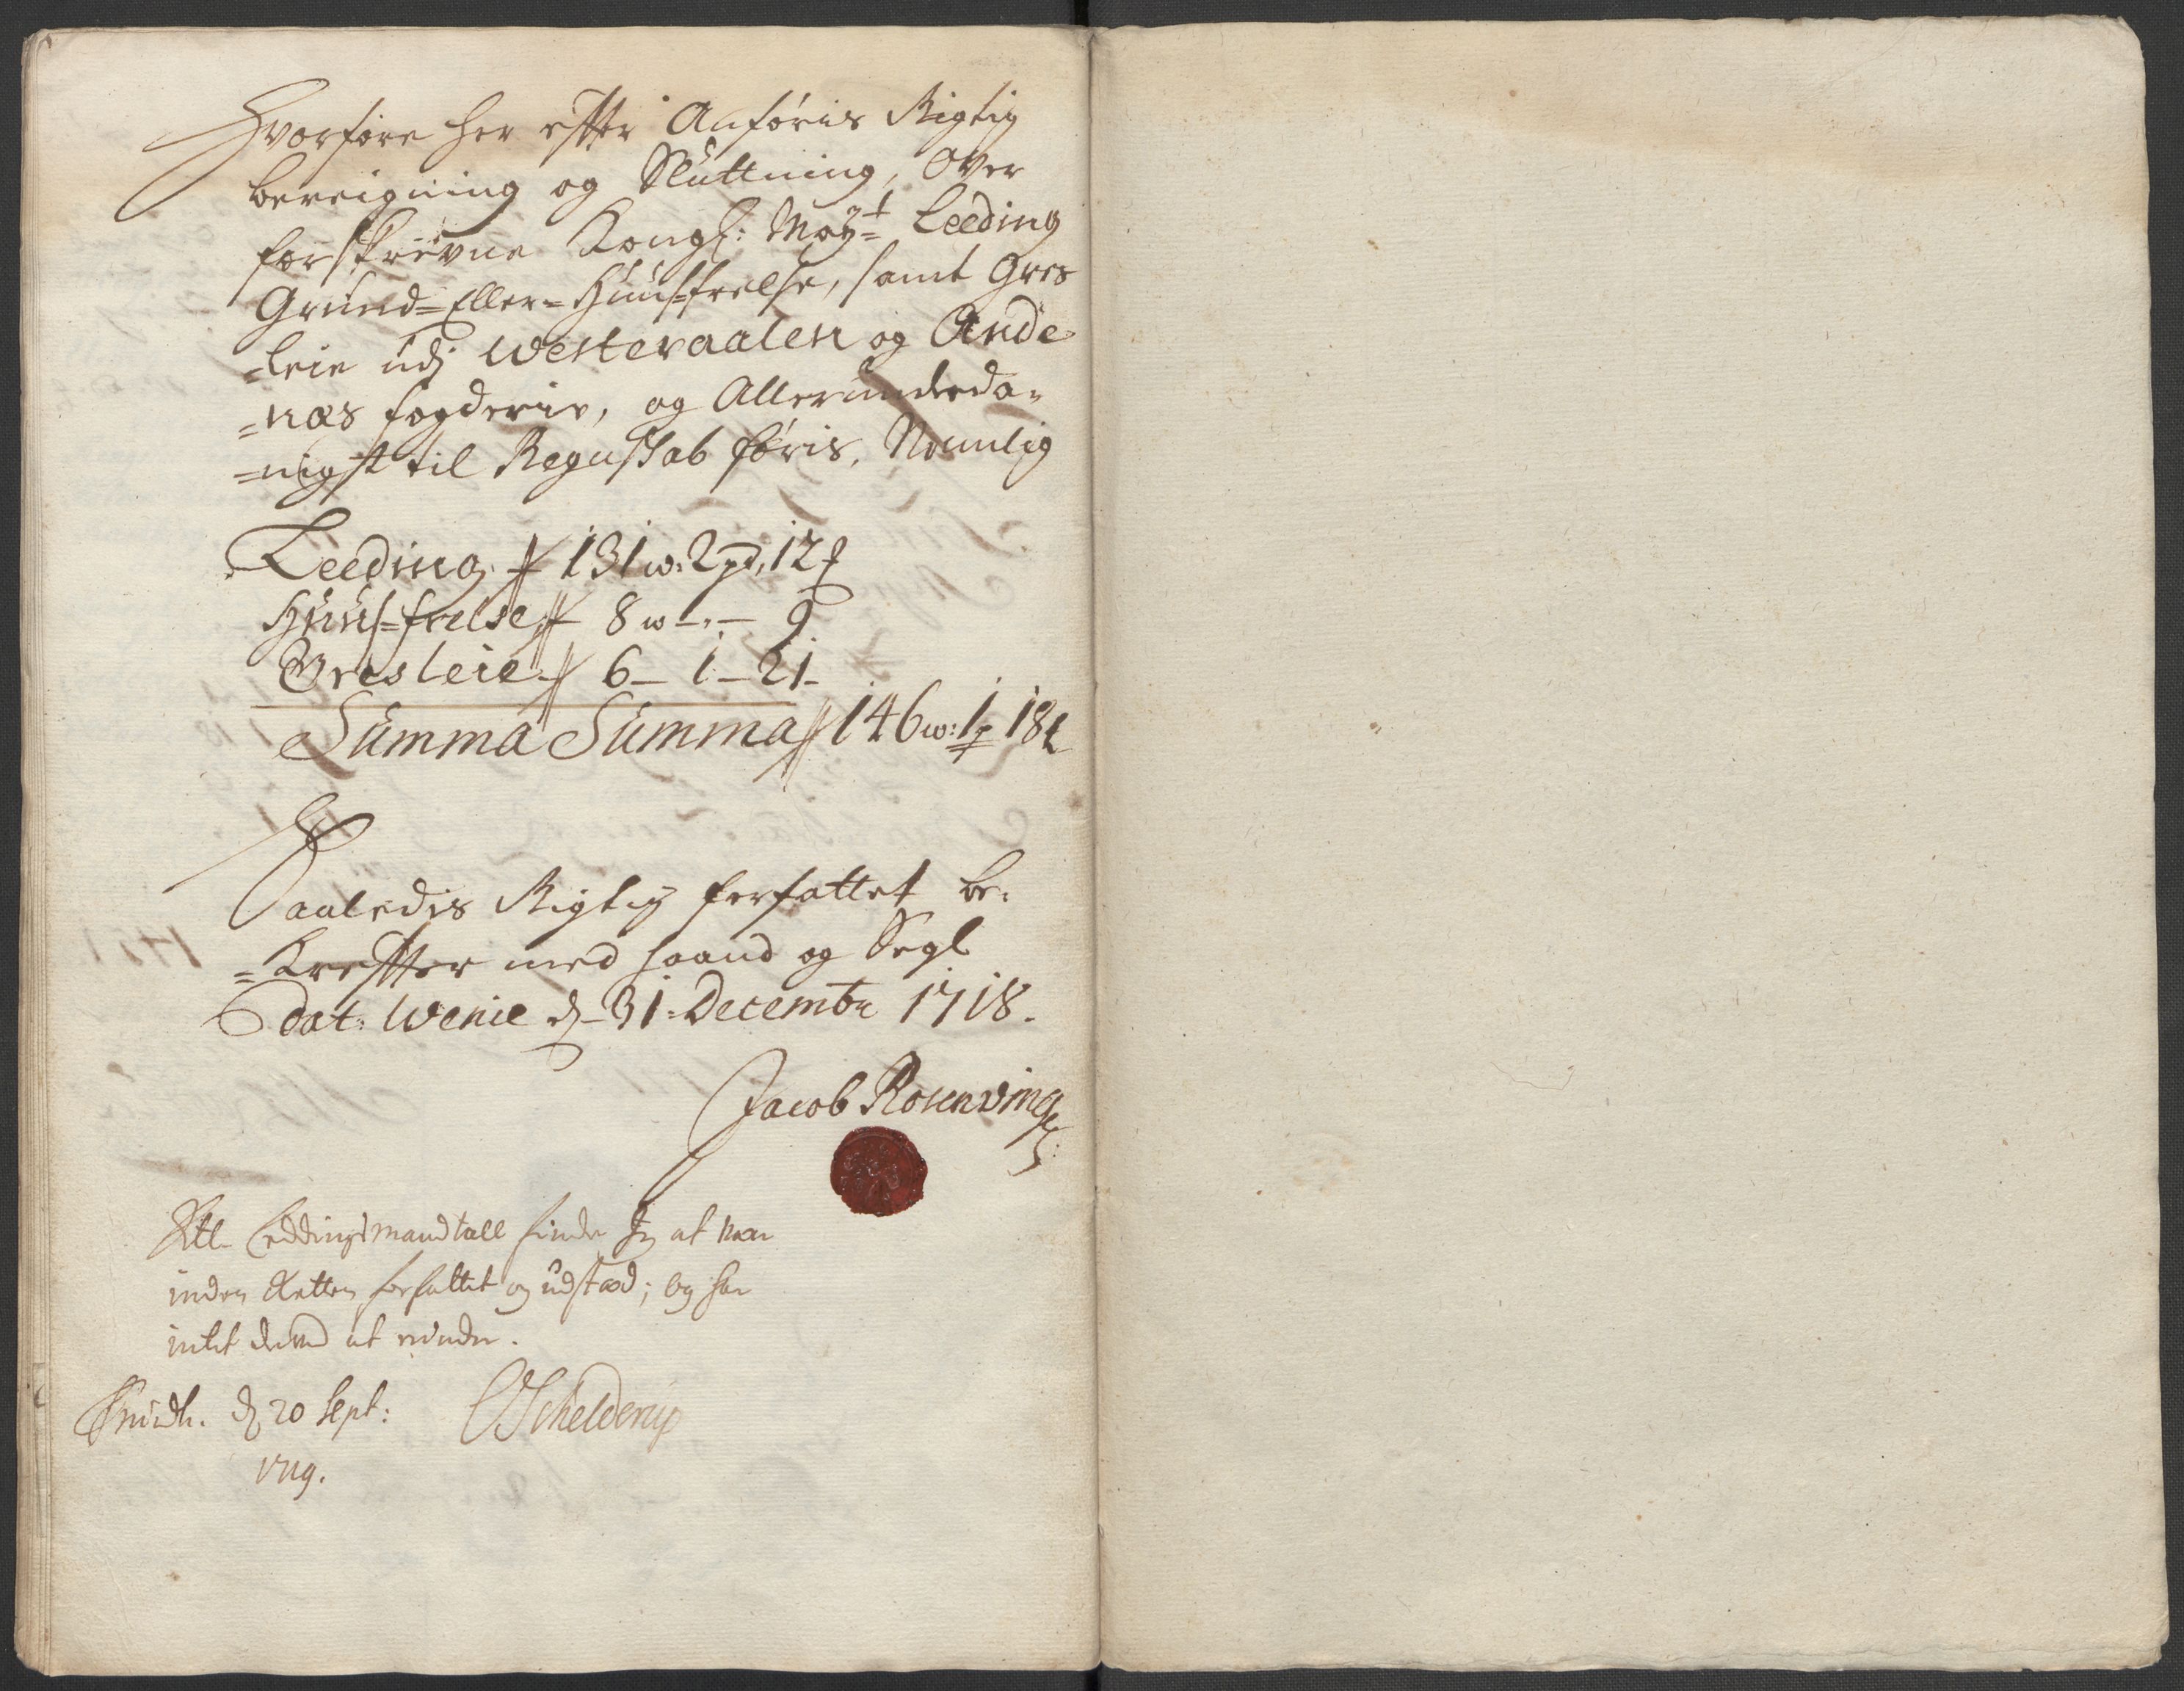 Hvorfore her efter Anføris Rigtig
bereigning og Sluttning, Over
forskrevne Kongl: May=t Leeding
Grund=Eller=Huus=frelse, samt Gres
=leie udj Westeraalen og Ande
=næs fogderie, og Allerunderda=
=nigst til Regnskab føris. Nemlig
Leeding 131 w: 2 pd, 12
Huus=frelse 8 w - . - 9
Gresleie 6 - 1 - 21 -
Summa Summa 146 w: 1 p 18
Saaledis Rigtig forfattet be=
=krefter med haand og Segl
dat: Wenie d. 31: Decembr 1718.
Jacob Rosenving
Leddingsmandtall finder Jeg at være
inden Retten forfattet og udstæd; og har
intet derved at erindre.
Trundh. d. 20 Sept: Schelderup
1719.